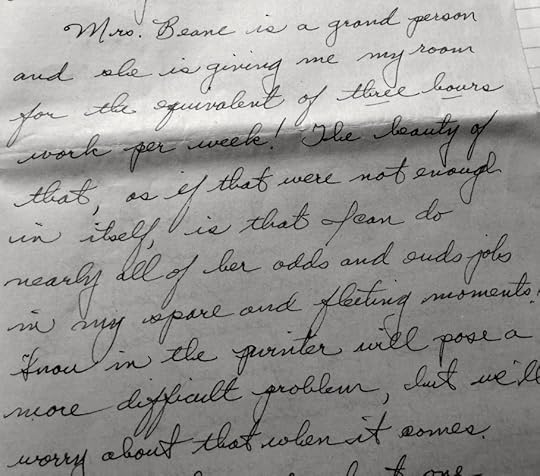 Mrs. Beane is a grand person
and she is giving me my room
for the equivalent of three hours
work per week! The beauty of
that, as if that were not enough
in itself, is that I can do
nearly all of her odds and ends jobs
in my spare and fleeting moments.
Snow in the winter will pose a
more difficult problem, but we'll
worry about that when it comes.